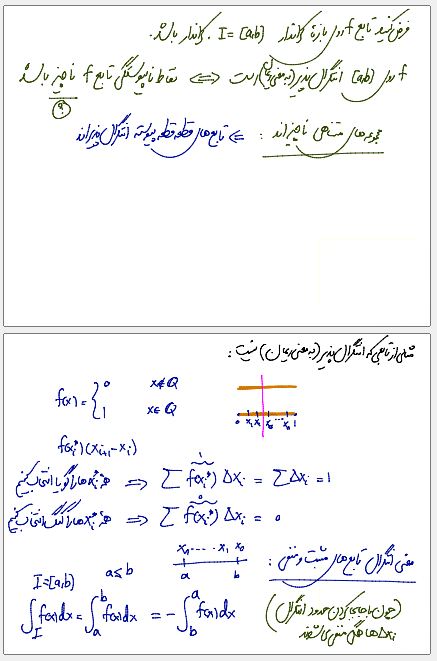 فرض کنید تابع f روی بازهٔ کراندار I = [a,b] ، کراندار باشد.
f روی [a,b] انتگرال پذیر (به معنی ریمان) است ⟺ نقاط ناپیوستگی تابع f ناچیز باشد
؟
مجموعه های متناهی ناچیزاند : ⇐ تابع های قطعه قطعه پیوسته انتگرال پذیراند
مثالی از تابعی که انتگرال پذیر (به معنی ریمان) نیست :
f(x) = { 0 x∉Q
1 x∈Q
0 x₁ x₂ ... xₙ 1
f(xᵢ*)(xᵢ₊₁-xᵢ)
همهٔ xᵢ* ها را گویا انتخاب کنیم ⟹ ∑ f(xᵢ*) Δxᵢ = ∑ Δxᵢ = 1
1
همهٔ xᵢ* ها را گنگ انتخاب کنیم ⟹ ∑ f(xᵢ*) Δxᵢ = 0
0
معنی انتگرال تابع های مثبت و منفی :
xₙ ... x₁ x₀
a b
I=[a,b] a≤b
∫_I f(x)dx = ∫_a^b f(x)dx = -∫_b^a f(x)dx
(چون با جابجا کردن حدود انتگرال
Δxᵢ ها همگی منفی می شوند)